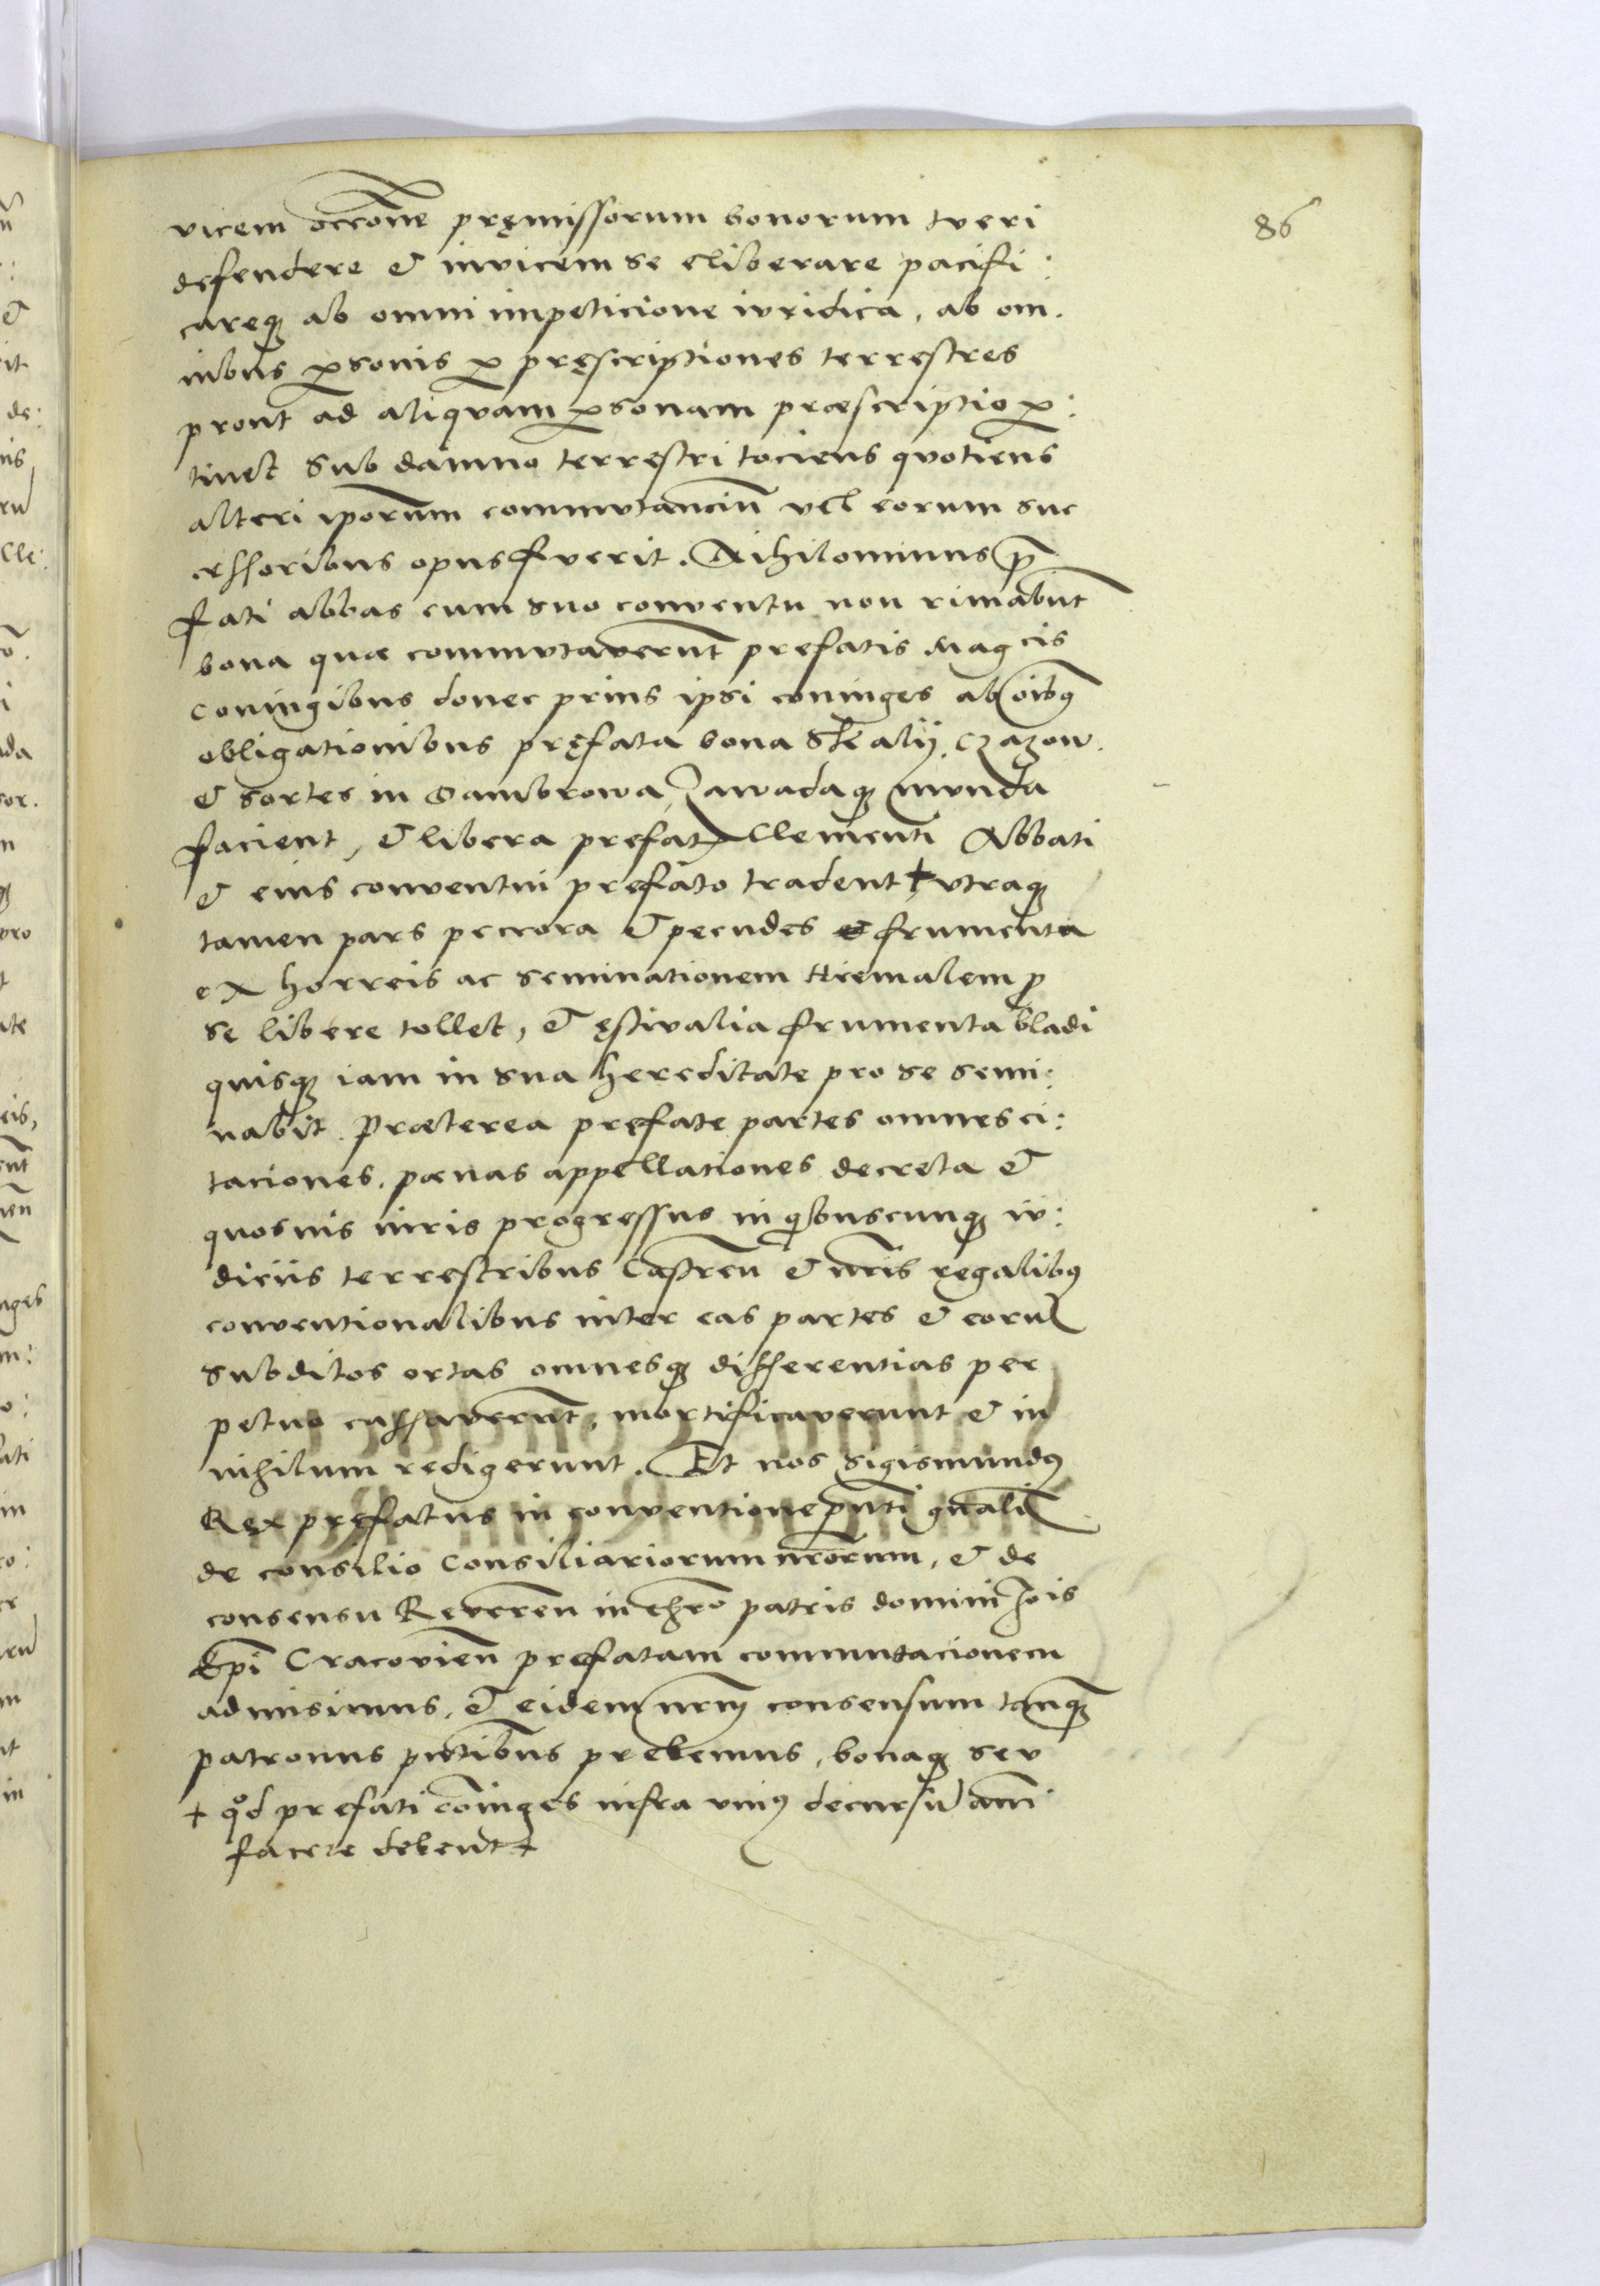 86
vicem occ̃one pręmissorum bonorum tveri
defendere & invicem se eliberare pacifi:
careq3 ab omni impeticione ivridica, ab om.
nibus ꝑsonis ꝑ pręscriptiones terrestres
prout ad aliqvam ꝑsonam præscriptio ꝑ:
tinet sub damno terrestri tociens qvotiens
alteri ip̃orum commvtanciũ vel eorum suc
cessoribus opus fverit. Nihilominus p̃
fati abbas cum suo conventu non rimabũt
bona quæ commvtaverũt prefatis Mag̃cis
coniugibus donec prius ipsi coniuges ab oĩbꝰ
obligationibus pręfata bona Skalij. Czazow.
& sortes in Dambrowa, Zawadaq3 munda
facient, & libera prefato Clementi Abbati
& eius conventui prefato tradent + vtraq3
tamen pars peccora & pecudes & frumenta
ex horreis ac seminationem Hiemalem p̱
se libere tollet, & ęstivalia frumenta bladi
quisq3 iam in sua hereditate pro se semi:
nabit. Præterea prefate partes omnes ci:
taciones. pœnas appellationes decreta &
quosvis iuris progressus in q̃buscunq3 iv:
diciis terrestribus Castreñ & nr̃is regalibꝰ
conventionalibus inter eas partes & eorũ
subditos ortas omnesq3 differentias per
petuo cassaverũt, mortificaverunt & in
nihilum redigerunt. Et nos Sigismundꝰ
Rex pręfatus in conventione pñti gñali
de consilio Consiliariorum nr̃orum, & de
consensu Revereñ in chr̃o patris domini Jo̅is
Ep̃i Cracovieñ prefatam commutacionem
admisimus, & eidem nr̃m consensum tanq3
patronus pñtibus prebemus, bonaq3 sev
+ qͦd prefati cõiuges infra vniꝰ decursũ anni
facere debent +